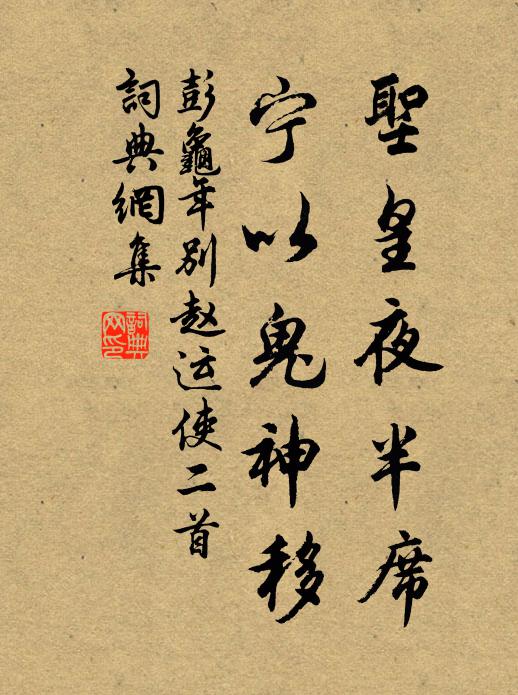 聖皇夜半席
宁以鬼神移
彭龜年別赵运使二首
詞典網集
詞典网印